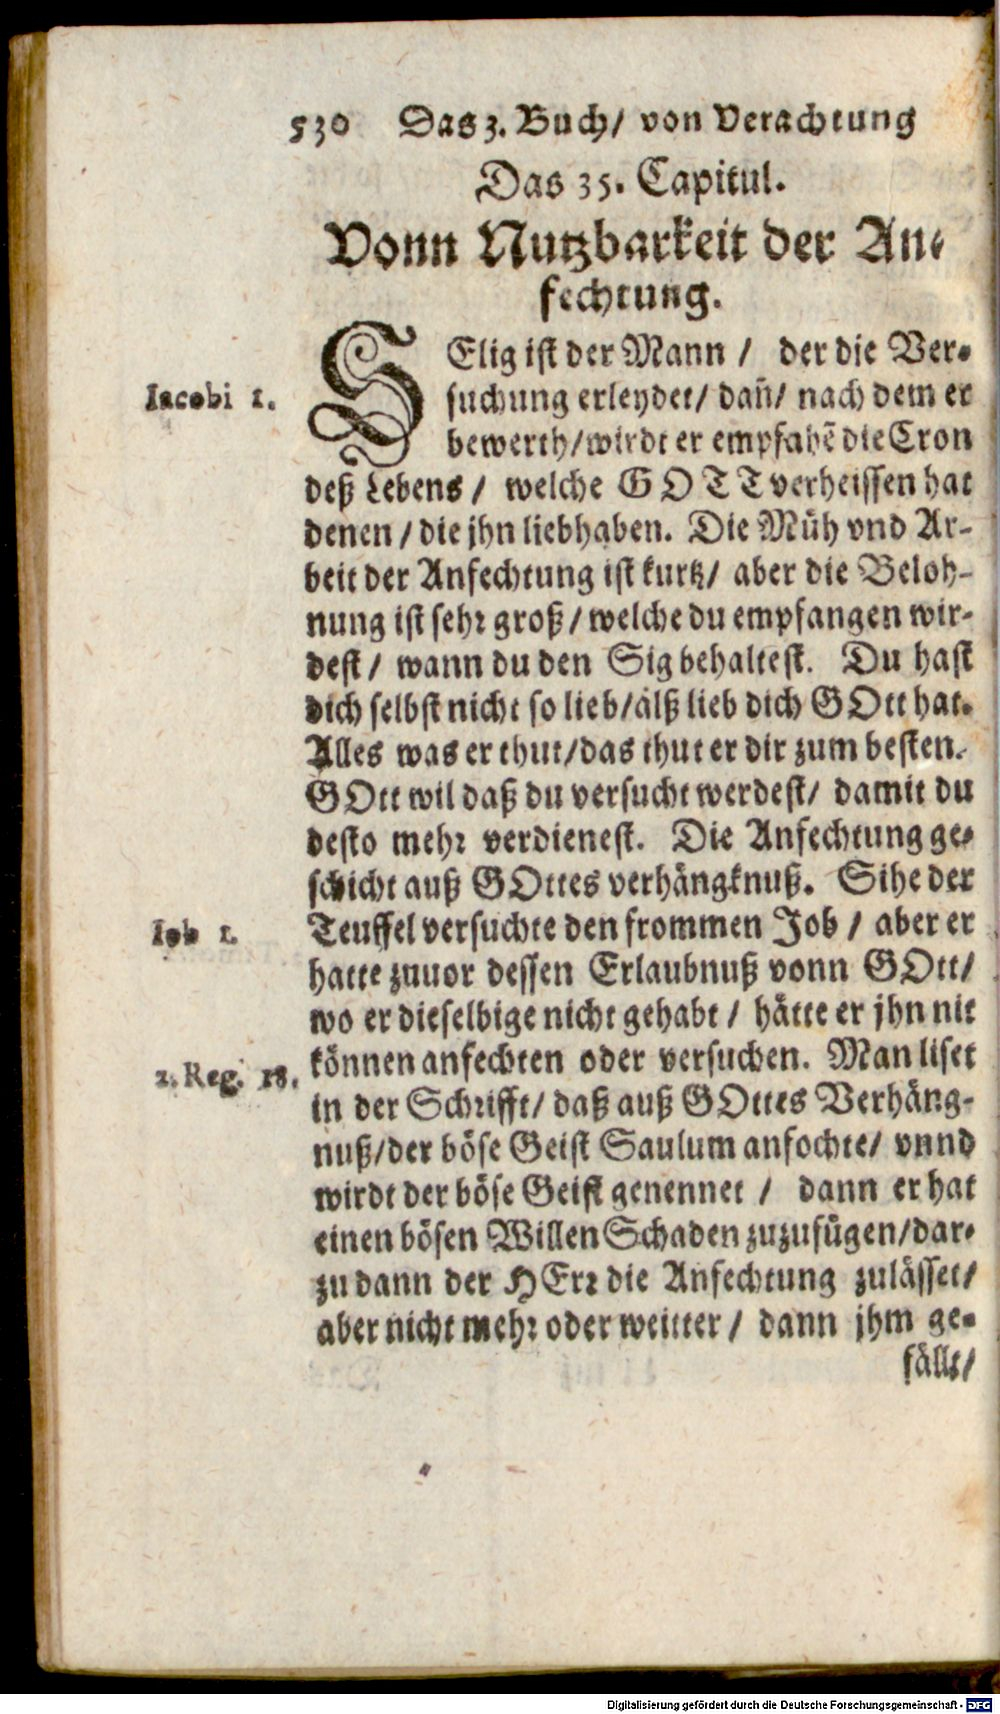 530 Das 3. Buch/ von Verachtung
Das 35. Capitul.
Vonn Nutzbarkeit der An-
fechtung.
SElig ist der Mann / der die Ver-
Iacobi 1.
suchung erleydet/ dañ/ nach dem er
bewerth/wirdt er empfahẽ die Cron
deß Lebens / welche GOTT verheissen hat
denen / die jhn liebhaben. Die Müh vnd Ar-
beit der Anfechtung ist kurtz/ aber die Beloh-
nung ist sehr groß / welche du empfangen wir-
dest / wann du den Sig behaltest. Du hast
dich selbst nicht so lieb/ alß lieb dich GOtt hat.
Alles was er thut/das thut er dir zum besten.
GOtt wil daß du versucht werdest/ damit du
desto mehr verdienest. Die Anfechtung ge-
schicht auß GOttes verhängknuß. Sihe der
Iob 1.
Teuffel versuchte den frommen Job / aber er
hatte zuuor dessen Erlaubnuß vonn GOtt/
wo er dieselbige nicht gehabt / hätte er jhn nit
können anfechten oder versuchen. Man liset
1. Reg. 18.
in der Schrifft/ daß auß GOttes Verhäng-
nuß/der böse Geist Saulum anfochte/ vnnd
wirdt der böse Geist genennet / dann er hat
einen bösen Willen Schaden zuzufügen/dar-
zu dann der HErr die Anfechtung zulässet/
aber nicht mehr oder weitter / dann jhm ge-
fällt/
Digitalisierung gefördert durch die Deutsche Forschungsgemeinschaft - DFG